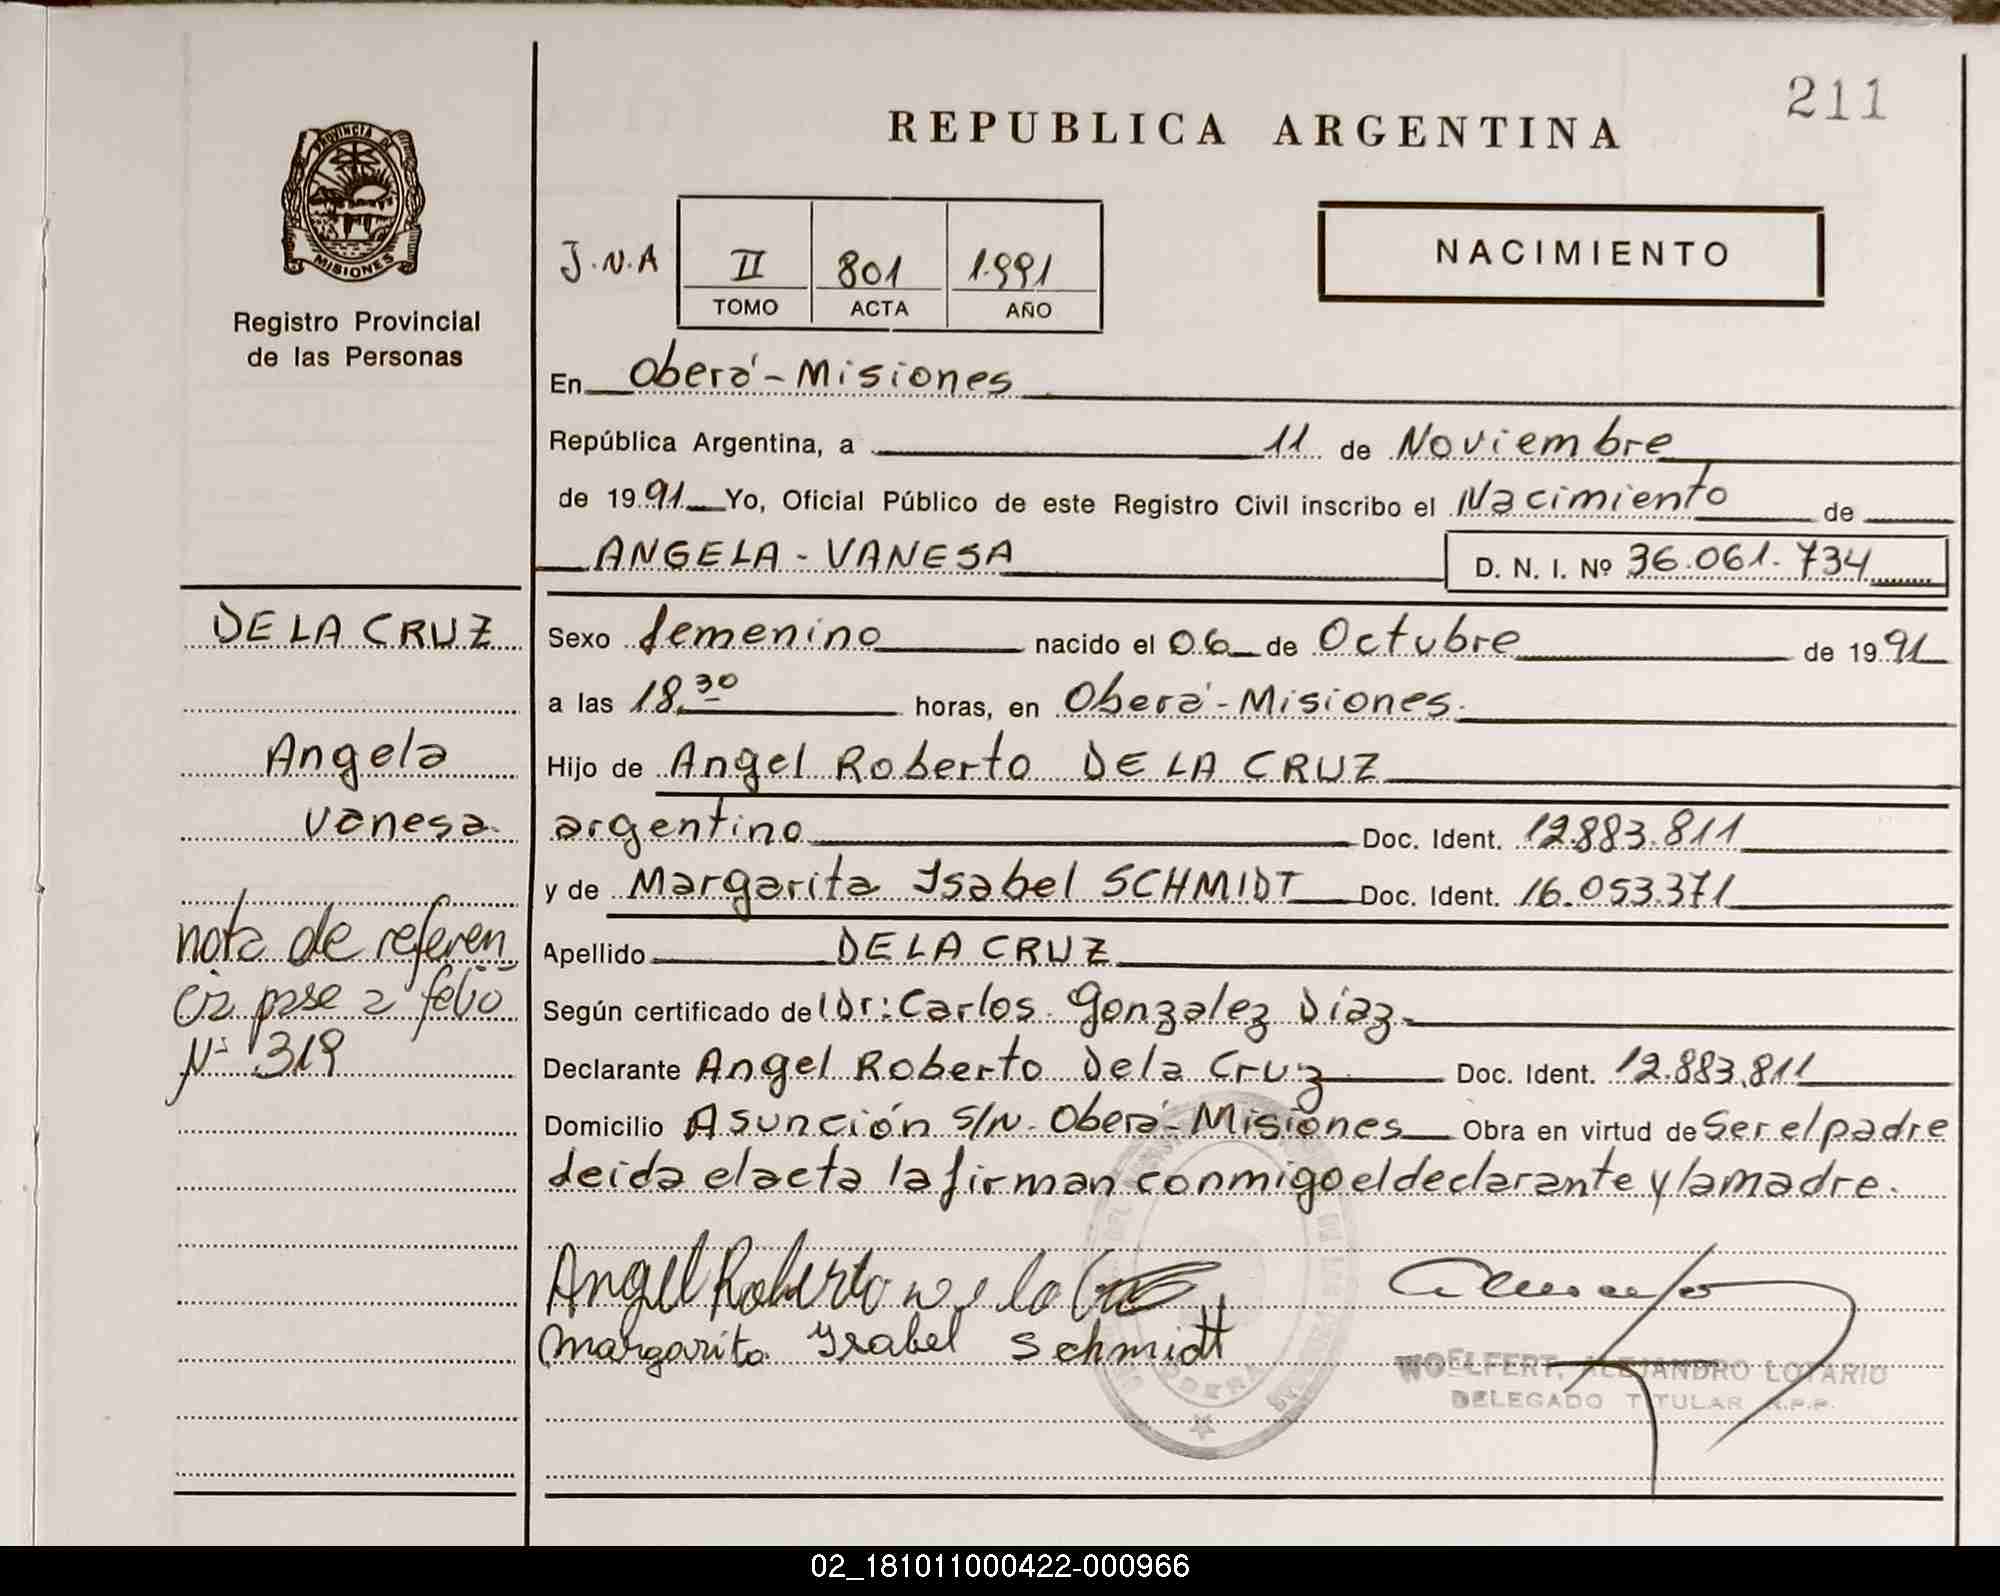 211
REPUBLICA ARGENTINA
PROVINCIA DE
MISIONES
Registro Provincial
de las Personas
J.N.A
II 801 1.991
TOMO ACTA AÑO
NACIMIENTO
En Oberá-Misiones
República Argentina, a 11 de Noviembre
de 19 91 Yo, Oficial Público de este Registro Civil inscribo el Nacimiento de
ANGELA - VANESA D. N. I. Nº 36.061.734
DE LA CRUZ
Angela
Vanesa.
nota de referen
cia pase a folio
Nº 319
Sexo femenino nacido el 06 de Octubre de 19 91
a las 18.30 horas, en Oberá-Misiones.
Hijo de Angel Roberto DE LA CRUZ
argentino Doc. Ident. 12.883.811
y de Margarita Isabel SCHMIDT Doc. Ident. 16.053.371
Apellido DE LA CRUZ
Según certificado de Dr: Carlos Gonzalez Díaz.
Declarante Angel Roberto De la Cruz Doc. Ident. 12.883.811
Domicilio Asunción S/N. Oberá-Misiones Obra en virtud de Ser el padre
leida el acta la firman conmigo el declarante y la madre.
Angel Roberto De la Cruz
Margarita Ysabel Schmidt
WOELFERT, ALEJANDRO LOTARIO
DELEGADO TITULAR R.P.P.
OBERA
02_181011000422-000966